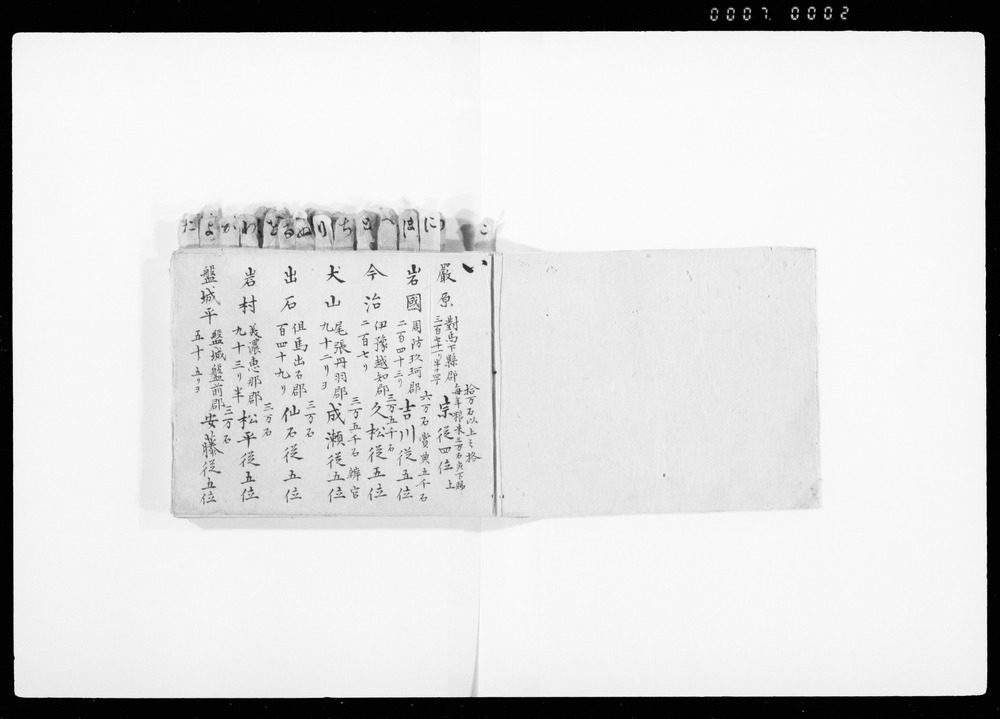 0007. 0002
こ
に
ほ
へ
と
ち
り
ぬ
る
を
わ
か
よ
た
い
嚴原
對馬下縣郡
拾万石以上之格
宗従四位上
岩國
周防玖珂郡
二百四十三リ
六万石 賞典五千石
吉川従五位
今治
伊豫越知郡
二百七リ
三万五千石
久松従五位
犬山
尾張丹羽郡
九十二リヨ
三万五千石 辨官
成瀬従五位
出石
但馬出石郡
百四十九リ
三万石
仙石従五位
岩村
美濃恵那郡
九十三リ半
三万石
松平従五位
盤城平
盤城盤前郡
五十五リヨ
三万石
安藤従五位